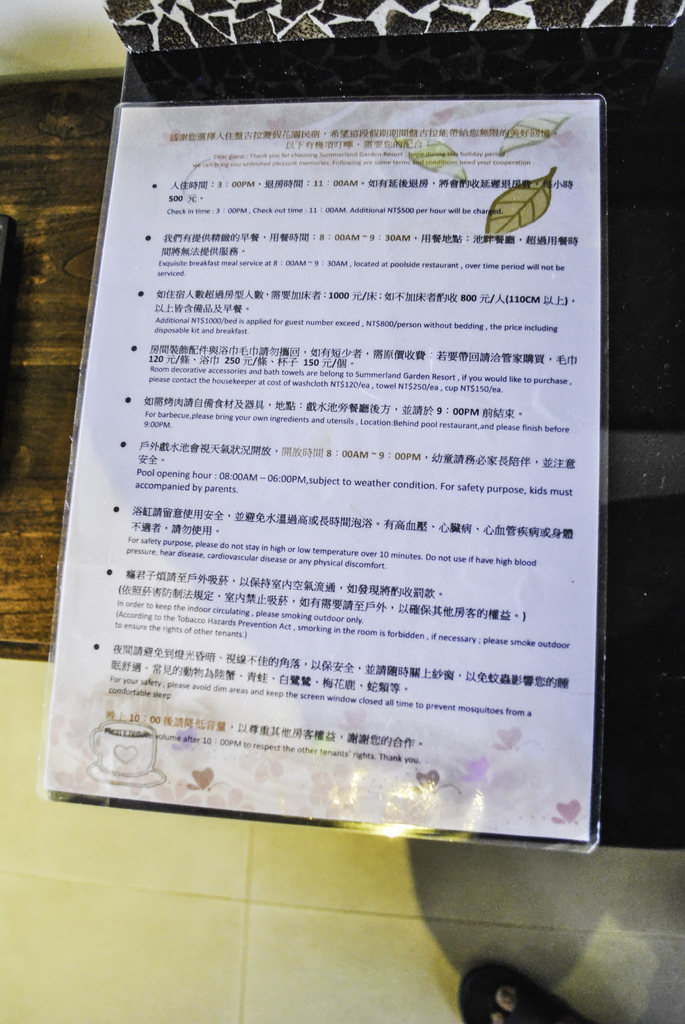 感謝您選擇入住盤古拉渡假花園民宿，希望這段假期期間盤古拉能帶給您無限的美好回憶。
以下有幾項叮嚀，需要您的配合：
Dear guest : Thank you for choosing Summerland Garden Resort , hope during this holiday period ,
we can bring you unlimited pleasant memories. Following are some terms and conditions need your cooperation :
• 入住時間：3：00PM，退房時間：11：00AM。如有延後退房，將會酌收延遲退房費，每小時
500 元。
Check in time : 3：00PM , Check out time : 11：00AM. Additional NT$500 per hour will be charged.
• 我們有提供精緻的早餐，用餐時間：8：00AM ~ 9：30AM，用餐地點：池畔餐廳，超過用餐時
間將無法提供服務。
Exquisite breakfast meal service at 8：00AM ~ 9：30AM , located at poolside restaurant , over time period will not be
serviced.
• 如住宿人數超過房型人數，需要加床者：1000 元/床；如不加床者酌收 800 元/人(110CM 以上)，
以上皆含備品及早餐。
Additional NT$1000/bed is applied for guest number exceed , NT$800/person without bedding , the price including
disposable kit and breakfast.
• 房間裝飾配件與浴巾毛巾請勿攜回，如有短少者，需原價收費；若要帶回請洽管家購買，毛巾
120 元/條、浴巾 250 元/條、杯子 150 元/個。
Room decorative accessories and bath towels are belong to Summerland Garden Resort , if you would like to purchase ,
please contact the housekeeper at cost of washcloth NT$120/ea , towel NT$250/ea , cup NT$150/ea.
• 如需烤肉請自備食材及器具，地點：戲水池旁餐廳後方，並請於 9：00PM 前結束。
For barbecue,please bring your own ingredients and utensils , Location:Behind pool restaurant,and please finish before
9:00PM.
• 戶外戲水池會視天氣狀況開放，開放時間 8：00AM ~ 9：00PM，幼童請務必家長陪伴，並注意
安全。
Pool opening hour : 08:00AM – 06:00PM,subject to weather condition. For safety purpose, kids must
accompanied by parents.
• 浴缸請留意使用安全，並避免水溫過高或長時間泡浴。有高血壓、心臟病、心血管疾病或身體
不適者，請勿使用。
For safety purpose, please do not stay in high or low temperature over 10 minutes. Do not use if have high blood
pressure, hear disease, cardiovascular disease or any physical discomfort.
• 癮君子煩請至戶外吸菸，以保持室內空氣流通，如發現將酌收罰款。
(依照菸害防制法規定，室內禁止吸菸，如有需要請至戶外，以確保其他房客的權益。)
In order to keep the indoor circulating , please smoking outdoor only.
(According to the Tobacco Hazards Prevention Act , smorking in the room is forbidden , if necessary ; please smoke outdoor
to ensure the rights of other tenants.)
• 夜間請避免到燈光昏暗、視線不佳的角落，以保安全，並請隨時關上紗窗，以免蚊蟲影響您的睡
眠舒適。常見的動物為陸蟹、青蛙、白鷺鷥、梅花鹿、蛇類等。
For your safety , please avoid dim areas and keep the screen window closed all time to prevent mosquitoes from a
comfortable sleep.
晚上 10：00 後請降低音量，以尊重其他房客權益，謝謝您的合作。
Please reduce volume after 10：00PM to respect the other tenants' rights. Thank you.